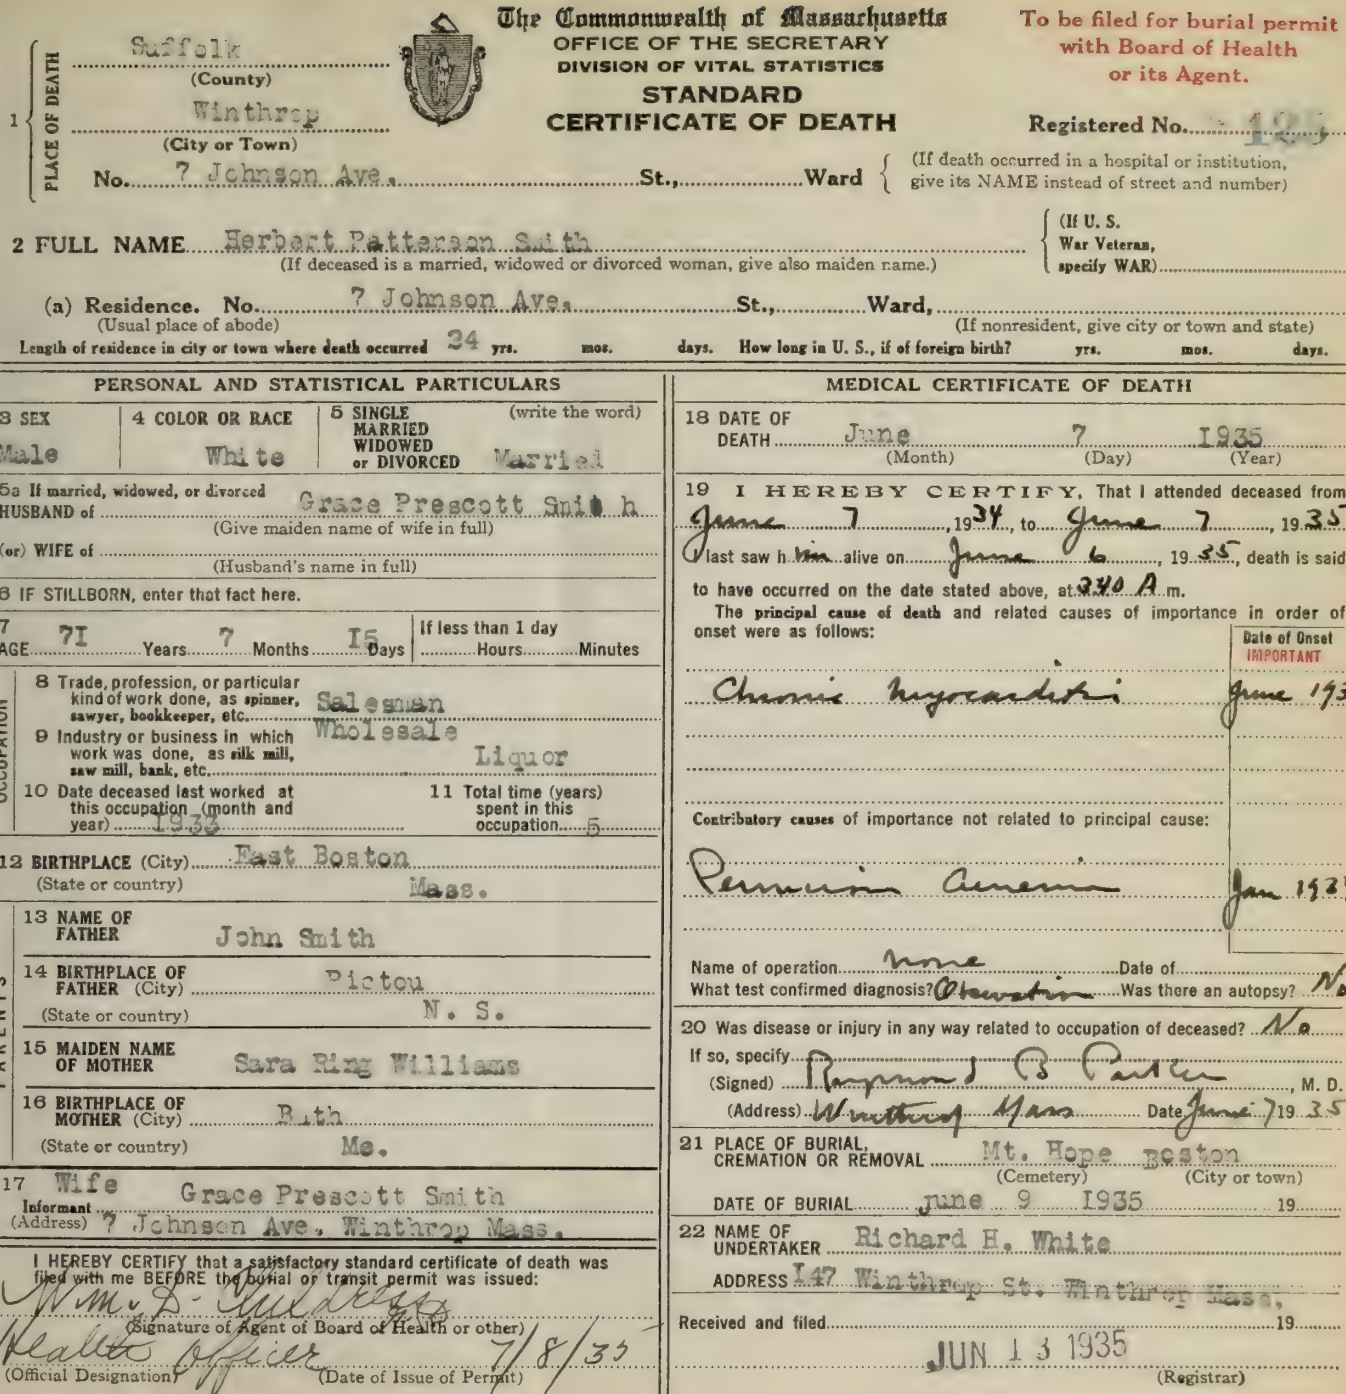 The Commonwealth of Massachusetts
OFFICE OF THE SECRETARY
DIVISION OF VITAL STATISTICS
STANDARD
CERTIFICATE OF DEATH
To be filed for burial permit
with Board of Health
or its Agent.
Registered No. 125
1 PLACE OF DEATH
Suffolk
(County)
Winthrop
(City or Town)
No. 7 Johnson Ave. St., Ward
(If death occurred in a hospital or institution,
give its NAME instead of street and number)
2 FULL NAME Herbert Patterson Smith
(If deceased is a married, widowed or divorced woman, give also maiden name.)
(If U. S.
War Veteran,
specify WAR)
(a) Residence. No. 7 Johnson Ave. St., Ward,
(Usual place of abode) (If nonresident, give city or town and state)
Length of residence in city or town where death occurred 24 yrs. mos. days. How long in U. S., if of foreign birth? yrs. mos. days.
PERSONAL AND STATISTICAL PARTICULARS
3 SEX 4 COLOR OR RACE 5 SINGLE (write the word)
MARRIED
WIDOWED
or DIVORCED
Male White Married
5a If married, widowed, or divorced
HUSBAND of Grace Prescott Smit h
(Give maiden name of wife in full)
(or) WIFE of
(Husband's name in full)
6 IF STILLBORN, enter that fact here.
7
AGE 7I Years 7 Months I5 Days
If less than 1 day
Hours Minutes
OCCUPATION
8 Trade, profession, or particular
kind of work done, as spinner,
sawyer, bookkeeper, etc. Salesman
9 Industry or business in which
work was done, as silk mill,
saw mill, bank, etc. Wholesale
Liquor
10 Date deceased last worked at
this occupation (month and
year) I933
11 Total time (years)
spent in this
occupation 5
12 BIRTHPLACE (City) East Boston
(State or country) Mass.
PARENTS
13 NAME OF
FATHER John Smith
14 BIRTHPLACE OF
FATHER (City) Pictou
(State or country) N. S.
15 MAIDEN NAME
OF MOTHER Sara Ring Williams
16 BIRTHPLACE OF
MOTHER (City) Bath
(State or country) Me.
17 Wife Grace Prescott Smith
Informant
(Address) 7 Johnson Ave. Winthrop Mass.
I HEREBY CERTIFY that a satisfactory standard certificate of death was
filed with me BEFORE the burial or transit permit was issued:
Wm. D. Childress
(Signature of Agent of Board of Health or other)
Health Officer 7/8/35
(Official Designation) (Date of Issue of Permit)
MEDICAL CERTIFICATE OF DEATH
18 DATE OF
DEATH June 7 I935
(Month) (Day) (Year)
19 I HEREBY CERTIFY, That I attended deceased from
June 7, 1934, to June 7, 1935
I last saw him alive on June 6, 1935, death is said
to have occurred on the date stated above, at 3:40 A m.
The principal cause of death and related causes of importance in order of
onset were as follows:
Date of Onset
IMPORTANT
Chronic myocarditis June 193
Contributory causes of importance not related to principal cause:
Pernicious Anemia Jan 193
Name of operation none Date of
What test confirmed diagnosis? Observation Was there an autopsy? No
20 Was disease or injury in any way related to occupation of deceased? No
If so, specify
(Signed) Raymond B Parker, M. D.
(Address) Winthrop Mass Date June 7 1935
21 PLACE OF BURIAL,
CREMATION OR REMOVAL Mt. Hope Boston
(Cemetery) (City or town)
DATE OF BURIAL June 9 I935 19
22 NAME OF
UNDERTAKER Richard H. White
ADDRESS I47 Winthrop St. Winthrop Mass.
Received and filed 19
JUN 13 1935
(Registrar)